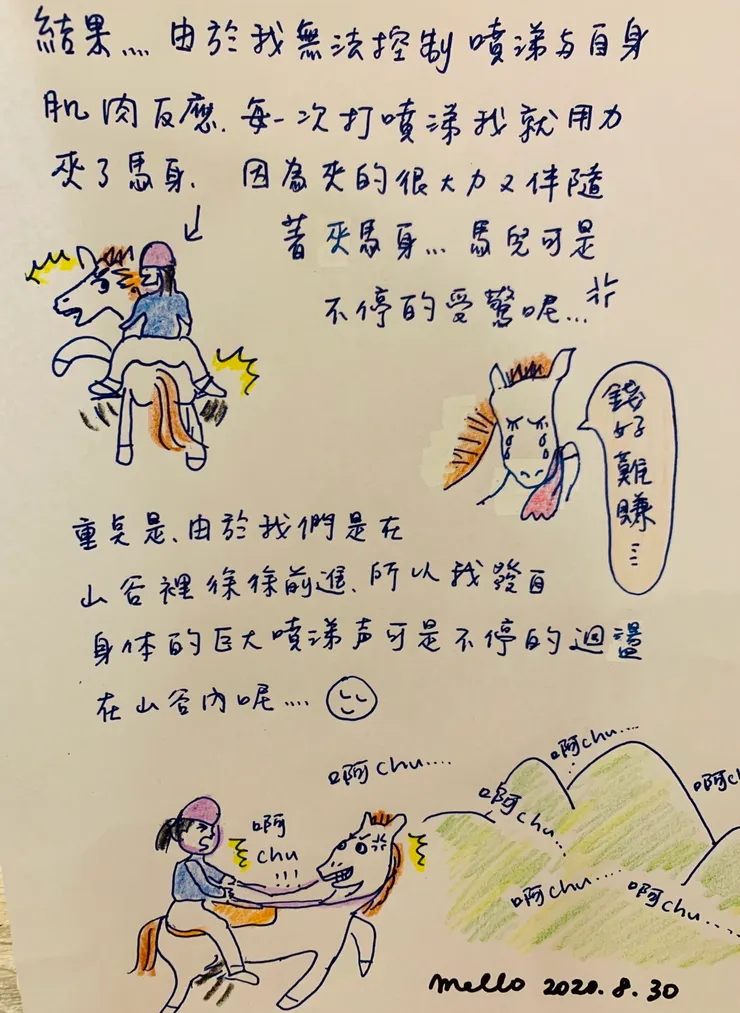 結果.... 由於我無法控制噴涕与自身
肌肉反應. 每一次打噴涕我就用力
夾了馬身. 因為夾的很大力又伴隨
著夾馬身... 馬兒可是
不停的受驚呢...
錢好難賺...
重点是. 由於我們是在
山谷裡徐徐前進. 所以我發自
身体的巨大噴涕声可是不停的迴盪
在山谷內呢....
啊chu....
啊chu....
啊chu
啊chu...
啊
chu
!!!
啊chu....
啊chu.....
mello 2020.8.30